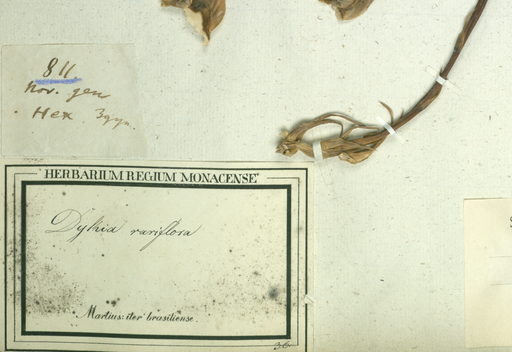 811
Nov. gen
Hex. 3gyn.
HERBARIUM REGIUM MONACENSE
Dykia rariflora
Martius: iter brasiliense.
36.